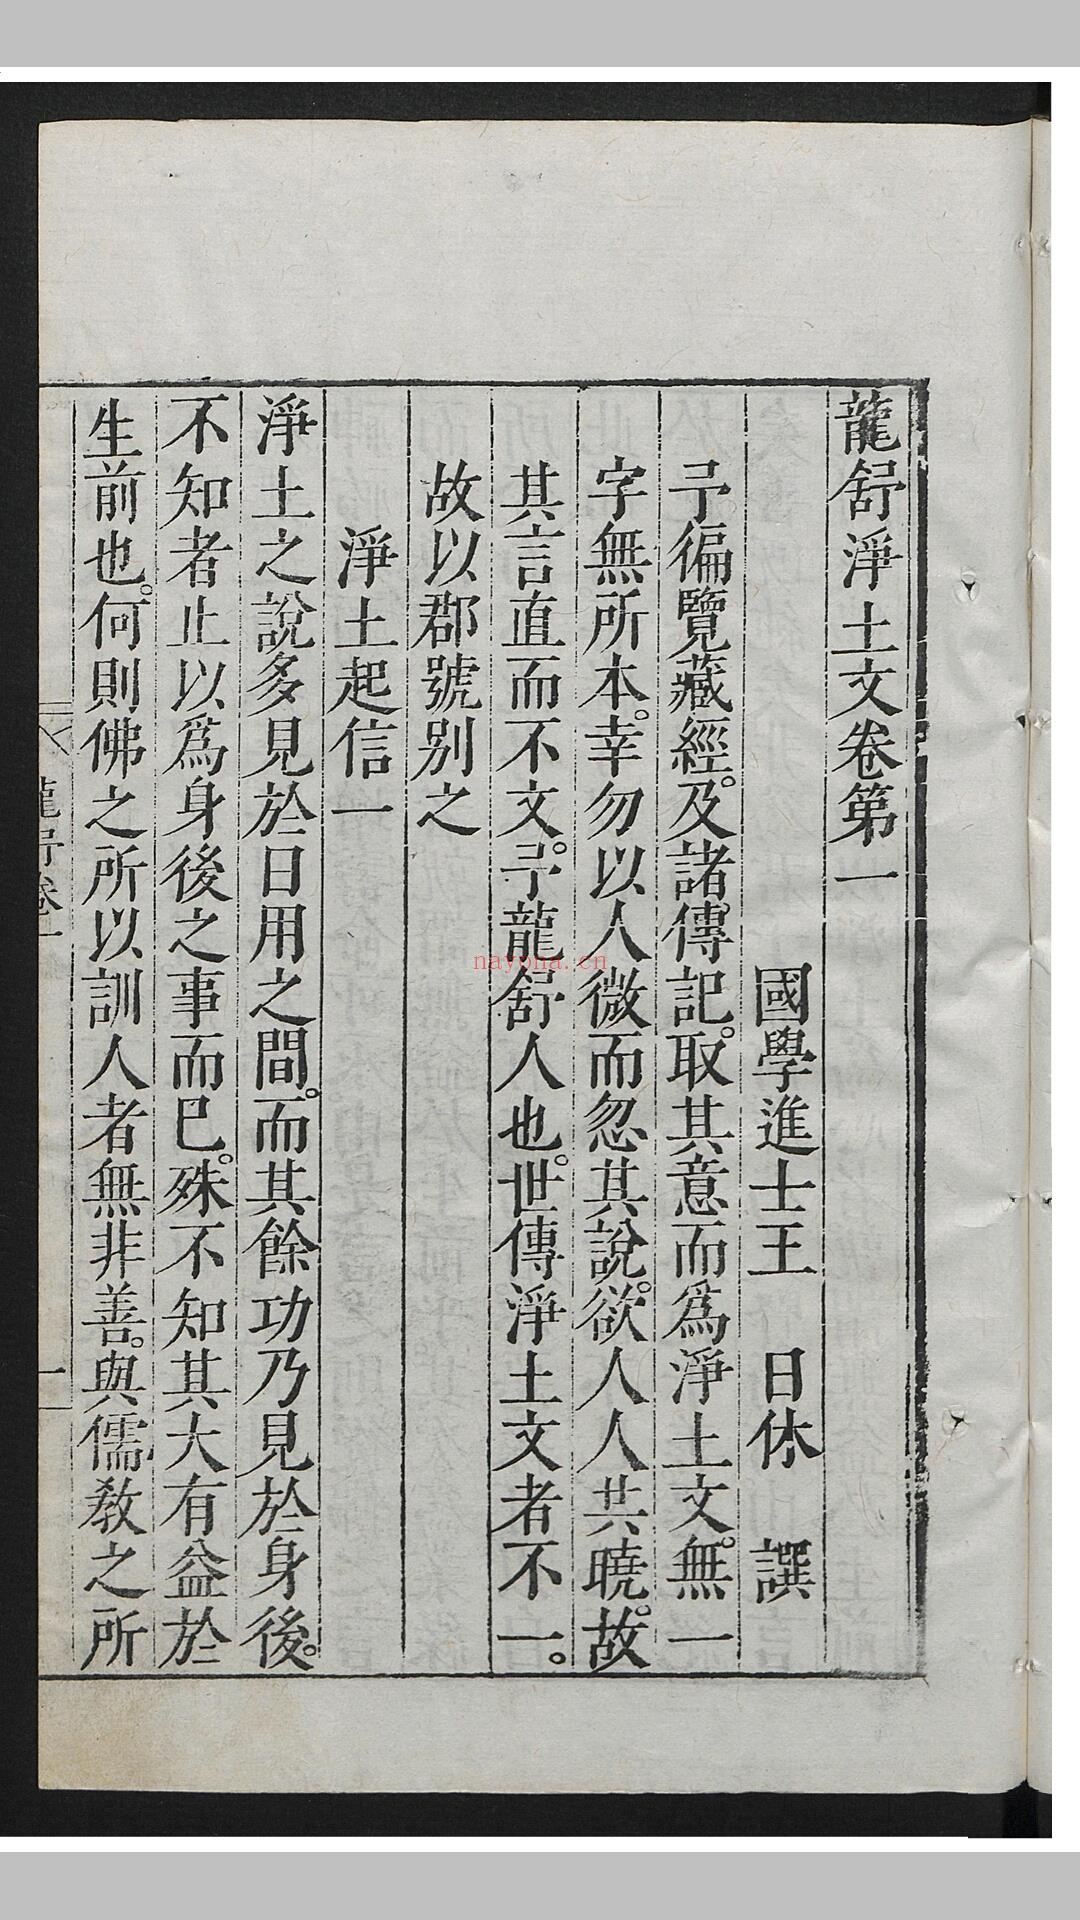 龍舒淨土文卷第一
國學進士王　日休　譔
予徧覽藏經。及諸傳記。取其意而爲淨土文。無一
字無所本。幸勿以人微而忽其說。欲人人共曉。故
其言直而不文。予龍舒人也。世傳淨土文者不一。
故以郡號別之
淨土起信一
淨土之說多見於日用之間。而其餘功乃見於身後。
不知者止以爲身後之事而已。殊不知其大有益於
生前也。何則佛之所以訓人者無非善。與儒教之所
龍舒卷一
一
nayona.cn